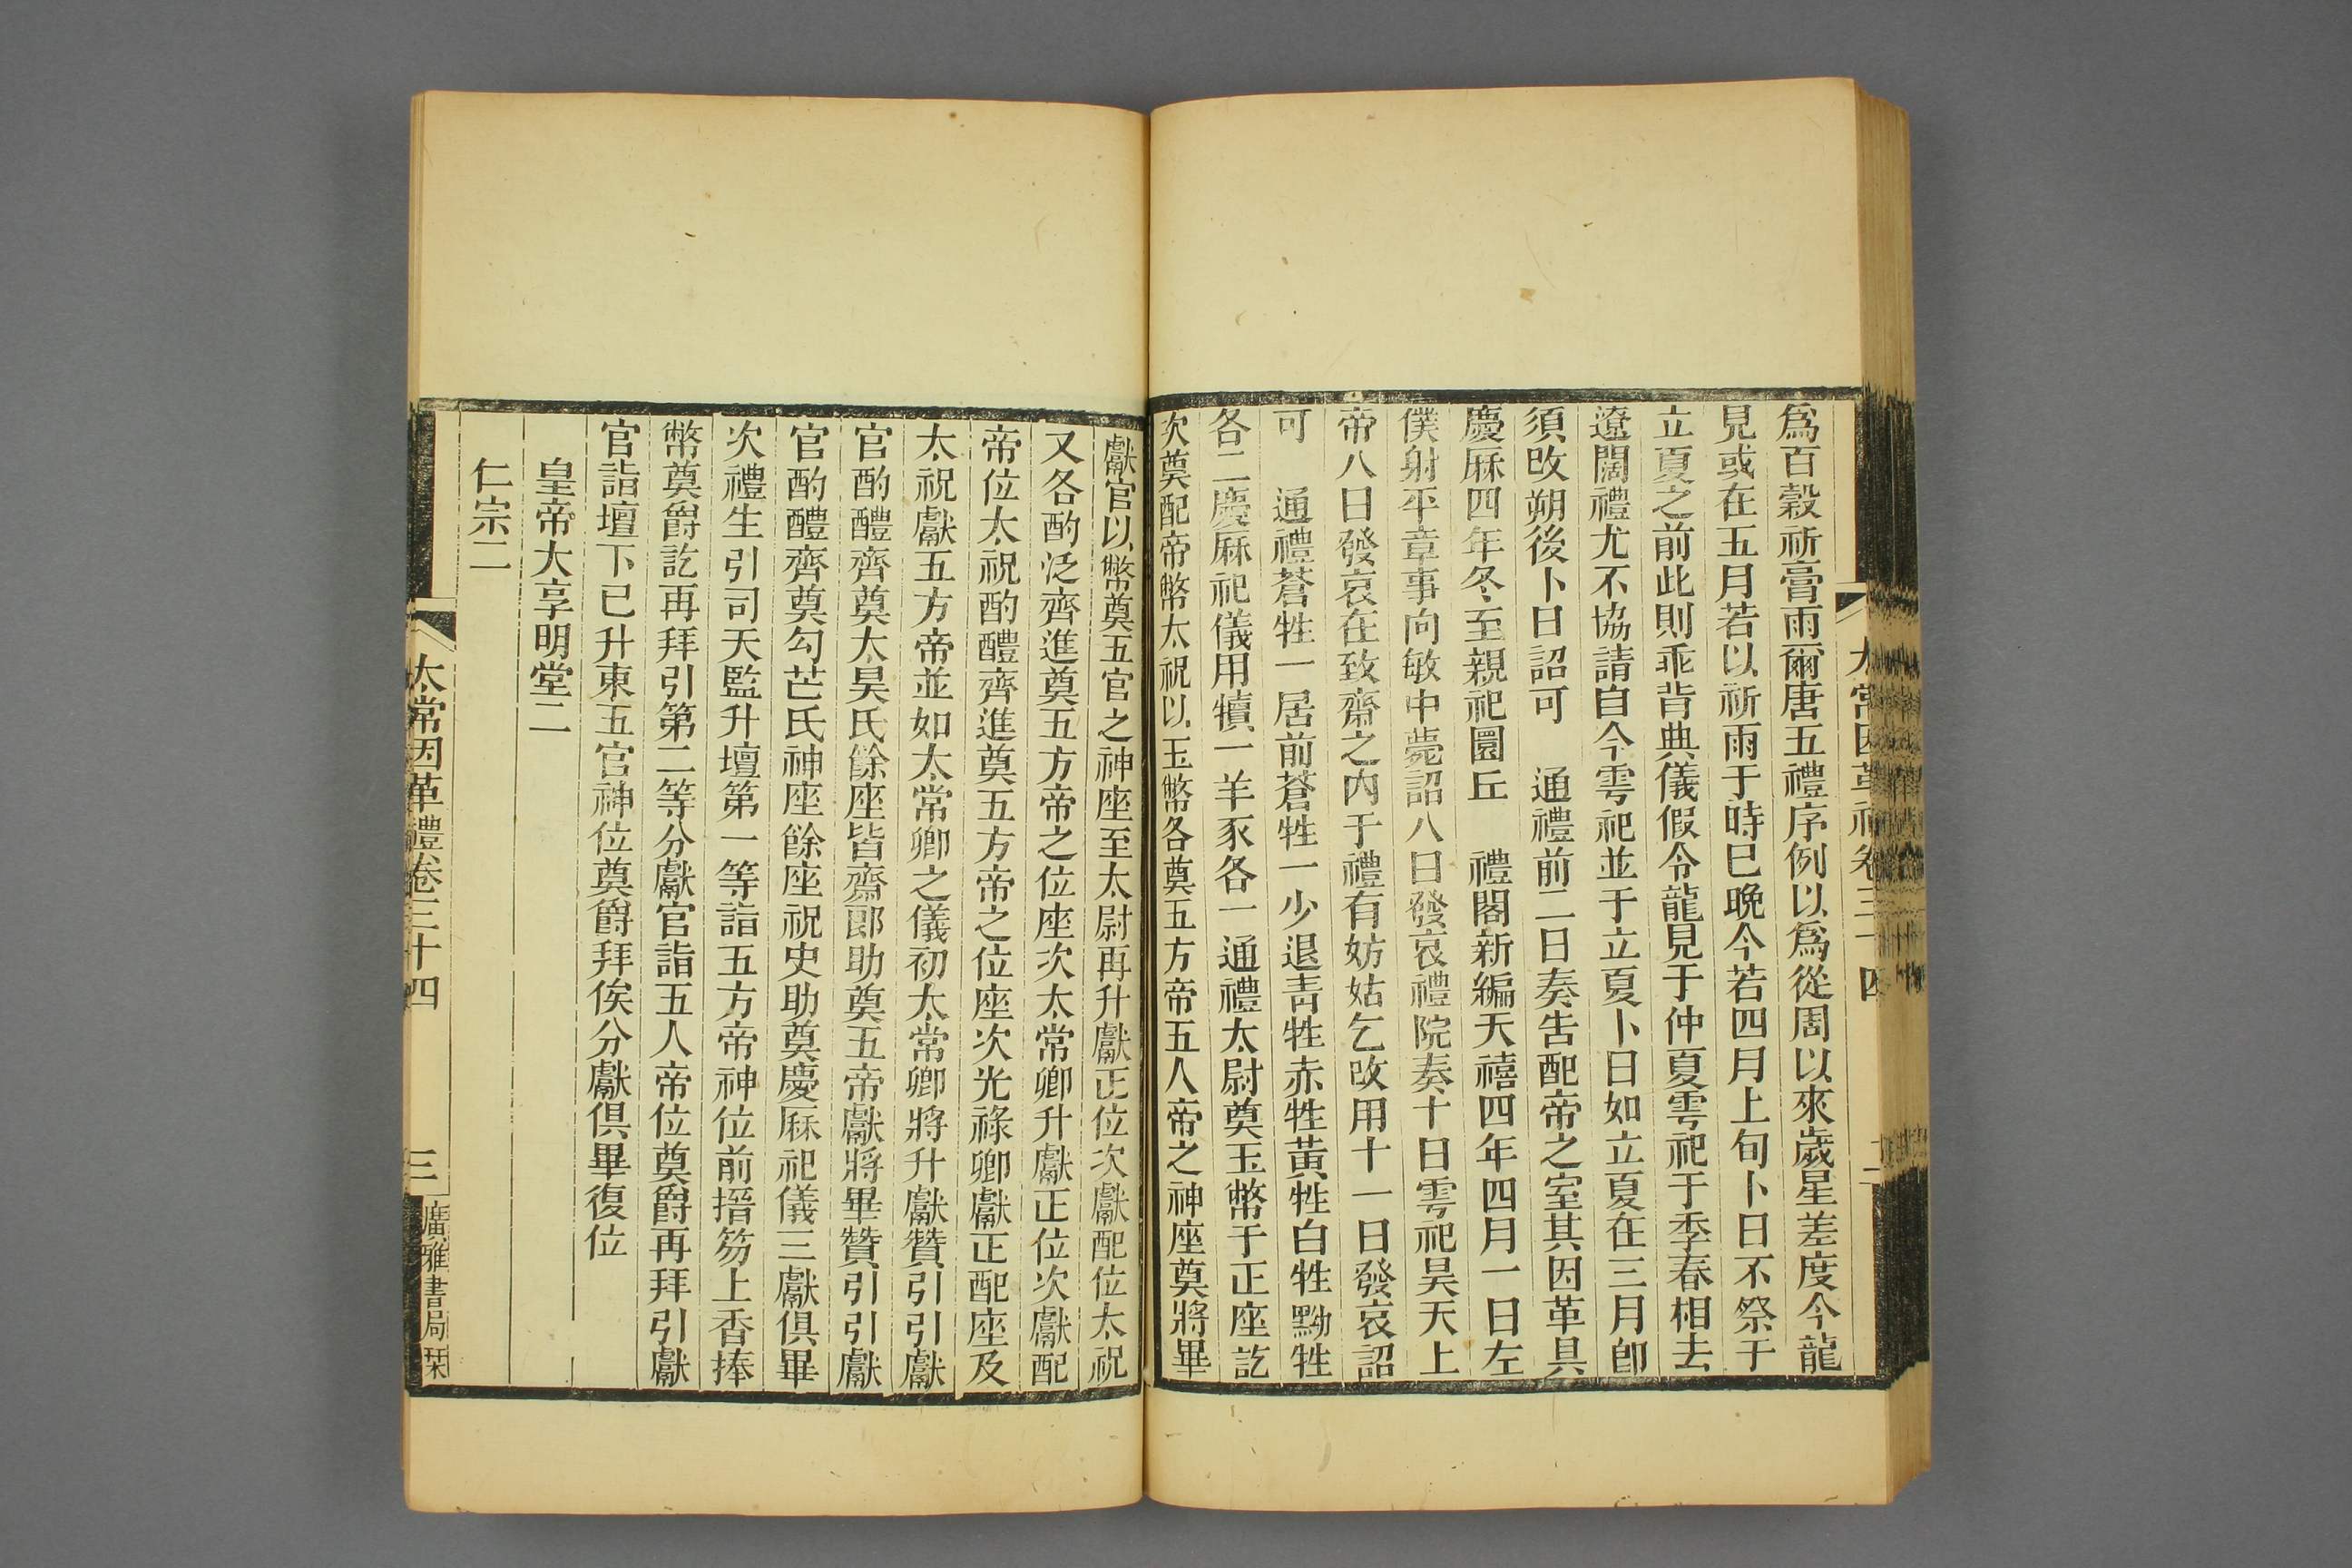 太常因革禮卷三十四 二
爲百穀祈膏雨爾唐五禮序例以爲從周以來歲星差度今龍
見或在五月若以祈雨于時巳晚今若四月上旬卜日不祭于
立夏之前此則乖背典儀假令龍見于仲夏雩祀于季春相去
遼闊禮尤不協請自今雩祀並于立夏卜日如立夏在三月卽
須改朔後卜日詔可　通禮前二日奏告配帝之室其因革具
慶厤四年冬至親祀圜丘　禮閣新編天禧四年四月一日左
僕射平章事向敏中薨詔八日發哀禮院奏十日雩祀昊天上
帝八日發哀在致齋之内于禮有妨姑乞改用十一日發哀詔
可　通禮蒼牲一居前蒼牲一少退靑牲赤牲黃牲白牲黝牲
各二慶厤祀儀用犢一羊豕各一通禮太尉奠玉幣于正座訖
次奠配帝幣太祝以玉幣各奠五方帝五人帝之神座奠將畢
獻官以幣奠五官之神座至太尉再升獻正位次獻配位太祝
又各酌泛齊進奠五方帝之位座次太常卿升獻正位次獻配
帝位太祝酌醴齊進奠五方帝之位座次光祿卿獻正配座及
太祝獻五方帝並如太常卿之儀初太常卿將升獻贊引引獻
官酌醴齊奠太昊氏餘座皆齋郎助奠五帝獻將畢贊引引獻
官酌醴齊奠勾芒氏神座餘座祝史助奠慶厤祀儀三獻俱畢
次禮生引司天監升壇第一等詣五方帝神位前搢笏上香捧
幣奠爵訖再拜引第二等分獻官詣五人帝位奠爵再拜引獻
官詣壇下已升東五官神位奠爵拜俟分獻俱畢復位
皇帝大享明堂二
仁宗二
太常因革禮卷三十四 三
廣雅書局栞